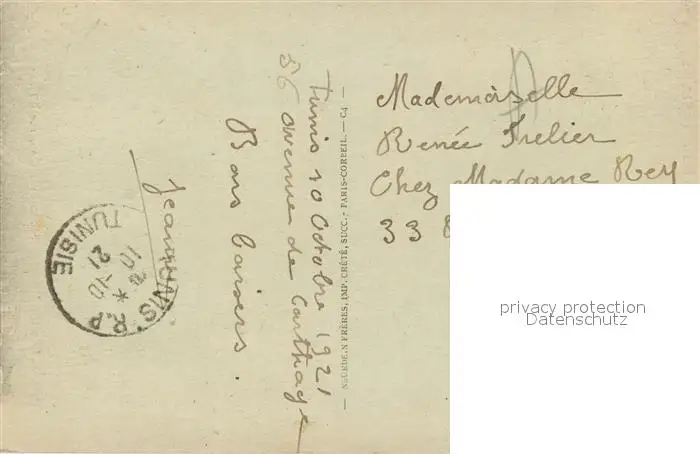 Tunis 10 Octobre 1921
56 avenue de Carthage
Bons baisers.
Jeanne
NEURDEIN FRÈRES, IMP. CRÉTÉ, SUCC. - PARIS-CORBEIL. — C4 —
Mademoiselle
Renée Trelier
Chez Madame Rey
33
TUNIS. R.P
TUNISIE
10 21
privacy protection
Datenschutz